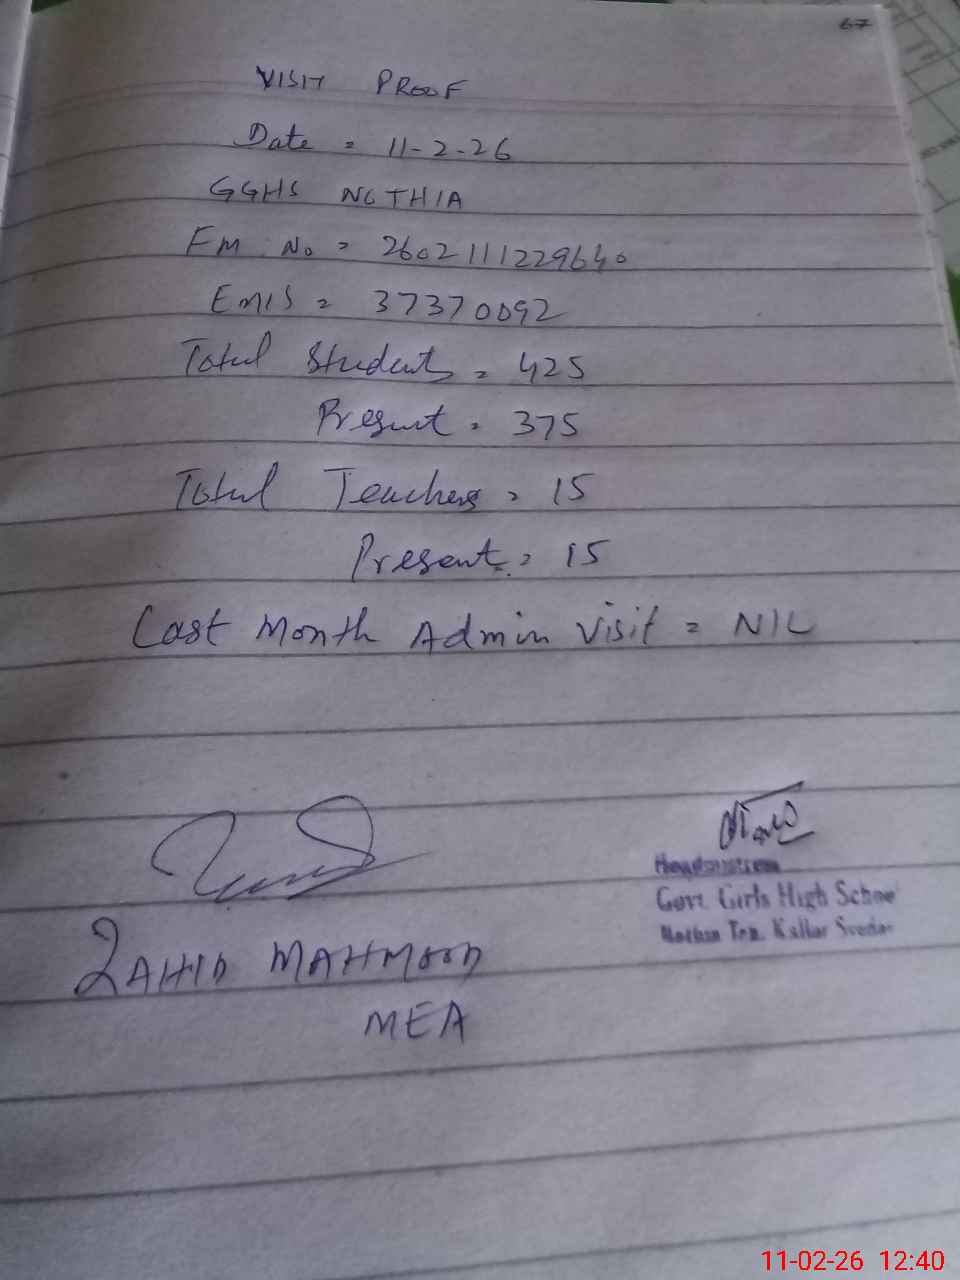 67
VISIT PROOF
Date = 11-2-26
GGHS NOTHIA
Fm No = 2602111229640
EMIS = 37370092
Total Students = 425
Present = 375
Total Teachers = 15
Present = 15
Last Month Admin Visit = NIL
Headmistress
Govt. Girls High School
Kallar
ZAHID MAHMOOD
MEA
11-02-26 12:40